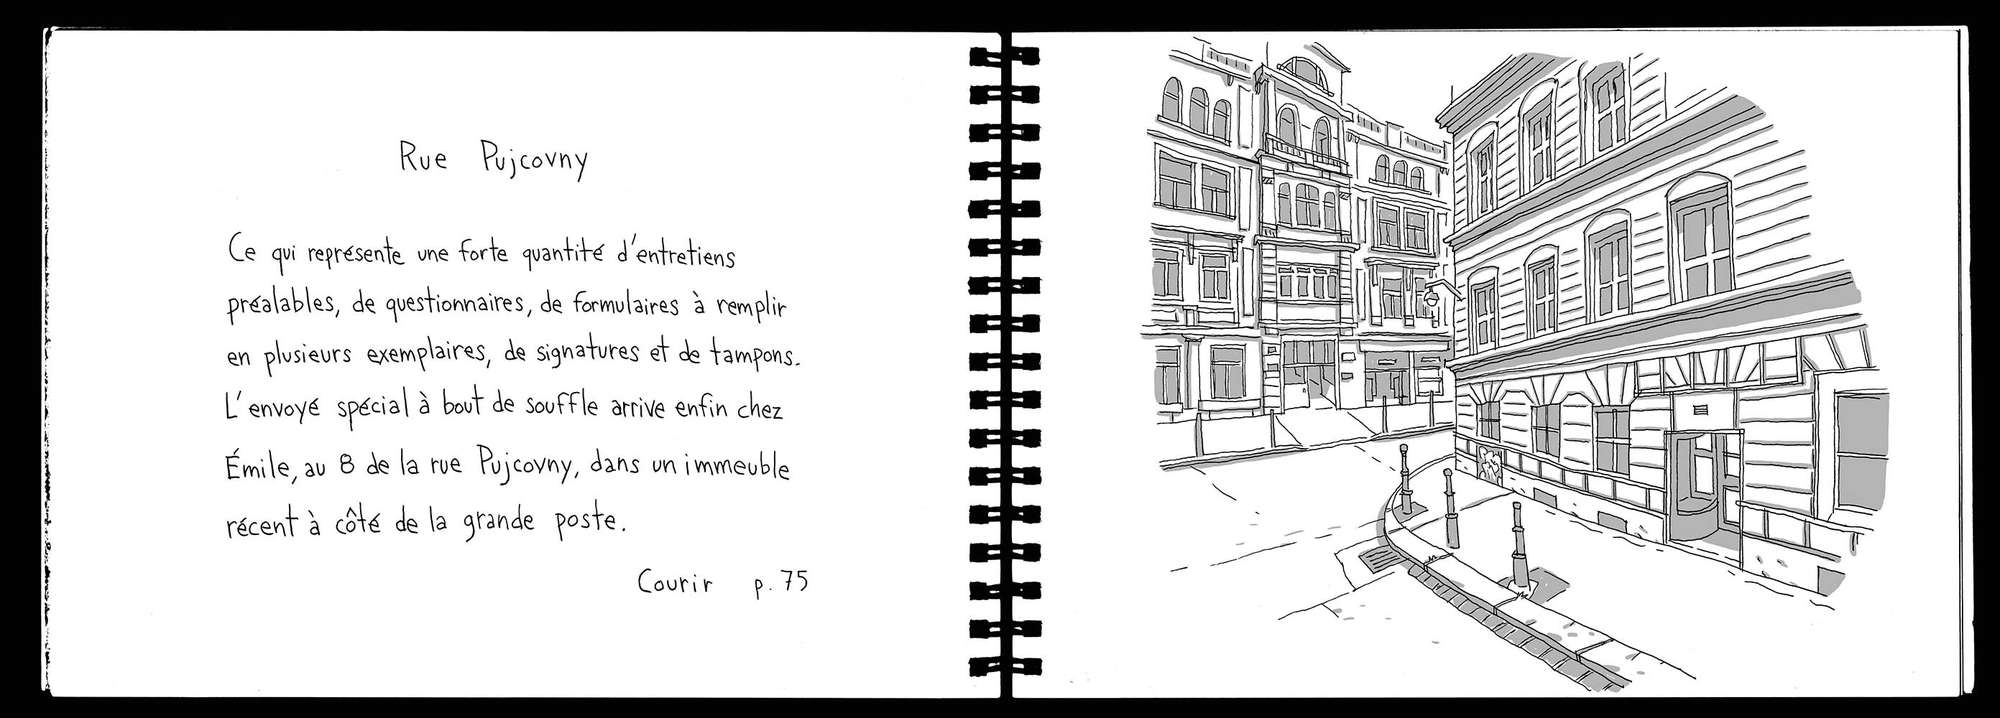 Rue Pujcovny
Ce qui représente une forte quantité d'entretiens
préalables, de questionnaires, de formulaires à remplir
en plusieurs exemplaires, de signatures et de tampons.
L'envoyé spécial à bout de souffle arrive enfin chez
Émile, au 8 de la rue Pujcovny, dans un immeuble
récent à côté de la grande poste.
Courir p. 75